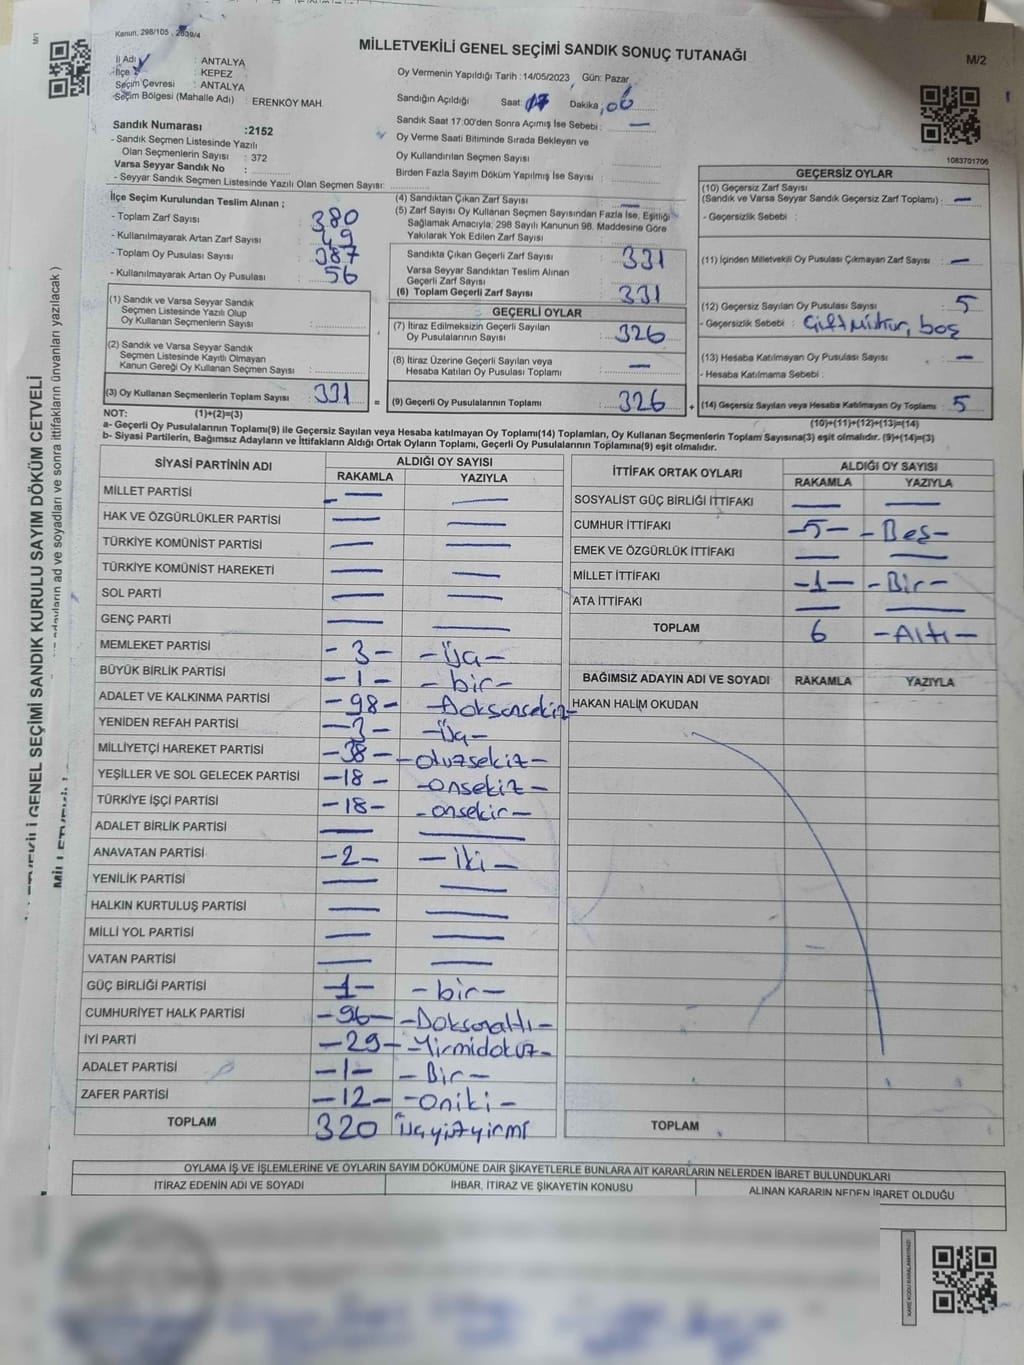 Kanun, 298/105 , 2839/4
MİLLETVEKİLİ GENEL SEÇİMİ SANDIK SONUÇ TUTANAĞI
M/2
İl Adı : ANTALYA
İlçe : KEPEZ
Seçim Çevresi : ANTALYA
Seçim Bölgesi (Mahalle Adı) : ERENKÖY MAH.
Oy Vermenin Yapıldığı Tarih :14/05/2023 Gün: Pazar
Sandığın Açıldığı Saat 17 Dakika 06
Sandık Saat 17:00'den Sonra Açımış İse Sebebi : —
Oy Verme Saati Bitiminde Sırada Bekleyen ve
Oy Kullandırılan Seçmen Sayısı :
Birden Fazla Sayım Döküm Yapılmış İse Sayısı :
1083701706
Sandık Numarası :2152
- Sandık Seçmen Listesinde Yazılı
Olan Seçmenlerin Sayısı : 372
Varsa Seyyar Sandık No :
- Seyyar Sandık Seçmen Listesinde Yazılı Olan Seçmen Sayısı:
İlçe Seçim Kurulundan Teslim Alınan ;
- Toplam Zarf Sayısı : 380
- Kullanılmayarak Artan Zarf Sayısı : 49
- Toplam Oy Pusulası Sayısı : 387
- Kullanılmayarak Artan Oy Pusulası : 56
(1) Sandık ve Varsa Seyyar Sandık
Seçmen Listesinde Yazılı Olup
Oy Kullanan Seçmenlerin Sayısı :
(2) Sandık ve Varsa Seyyar Sandık
Seçmen Listesinde Kayıtlı Olmayan
Kanun Gereği Oy Kullanan Seçmen Sayısı :
(3) Oy Kullanan Seçmenlerin Toplam Sayısı : 331
(4) Sandıktan Çıkan Zarf Sayısı : —
(5) Zarf Sayısı Oy Kullanan Seçmen Sayısından Fazla İse, Eşitliği
Sağlamak Amacıyla, 298 Sayılı Kanunun 98. Maddesine Göre
Yakılarak Yok Edilen Zarf Sayısı :
Sandıkta Çıkan Geçerli Zarf Sayısı : 331
Varsa Seyyar Sandıktan Teslim Alınan
Geçerli Zarf Sayısı :
(6) Toplam Geçerli Zarf Sayısı : 331
GEÇERLİ OYLAR
(7) İtiraz Edilmeksizin Geçerli Sayılan
Oy Pusulalarının Sayısı : 326
(8) İtiraz Üzerine Geçerli Sayılan veya
Hesaba Katılan Oy Pusulası Toplamı : —
= (9) Geçerli Oy Pusulalarının Toplamı : 326
GEÇERSİZ OYLAR
(10) Geçersiz Zarf Sayısı
(Sandık ve Varsa Seyyar Sandık Geçersiz Zarf Toplamı) : —
- Geçersizlik Sebebi :
(11) İçinden Milletvekili Oy Pusulası Çıkmayan Zarf Sayısı : —
(12) Geçersiz Sayılan Oy Pusulası Sayısı : 5
- Geçersizlik Sebebi : Çift Mühür, boş
(13) Hesaba Katılmayan Oy Pusulası Sayısı : —
- Hesaba Katılmama Sebebi :
+ (14) Geçersiz Sayılan veya Hesaba Katılmayan Oy Toplamı : 5
NOT: (1)+(2)=(3)
(10)+(11)+(12)+(13)=(14)
a- Geçerli Oy Pusulalarının Toplamı(9) ile Geçersiz Sayılan veya Hesaba katılmayan Oy Toplamı(14) Toplamları, Oy Kullanan Seçmenlerin Toplam Sayısına(3) eşit olmalıdır. (9)+(14)=(3)
b- Siyasi Partilerin, Bağımsız Adayların ve İttifakların Aldığı Ortak Oyların Toplamı, Geçerli Oy Pusulalarının Toplamına(9) eşit olmalıdır.
SİYASİ PARTİNİN ADI ALDIĞI OY SAYISI
RAKAMLA YAZIYLA
MİLLET PARTİSİ — —
HAK VE ÖZGÜRLÜKLER PARTİSİ — —
TÜRKİYE KOMÜNİST PARTİSİ — —
TÜRKİYE KOMÜNİST HAREKETİ — —
SOL PARTİ — —
GENÇ PARTİ — —
MEMLEKET PARTİSİ -3- -Üç-
BÜYÜK BİRLİK PARTİSİ -1- -bir-
ADALET VE KALKINMA PARTİSİ -98- -Doksansekiz-
YENİDEN REFAH PARTİSİ -3- -Üç-
MİLLİYETÇİ HAREKET PARTİSİ -38- -otuzsekiz-
YEŞİLLER VE SOL GELECEK PARTİSİ -18- -onsekiz-
TÜRKİYE İŞÇİ PARTİSİ -18- -onsekiz-
ADALET BİRLİK PARTİSİ — —
ANAVATAN PARTİSİ -2- -iki-
YENİLİK PARTİSİ — —
HALKIN KURTULUŞ PARTİSİ — —
MİLLİ YOL PARTİSİ — —
VATAN PARTİSİ — —
GÜÇ BİRLİĞİ PARTİSİ -1- -bir-
CUMHURİYET HALK PARTİSİ -96- -Doksanaltı-
İYİ PARTİ -29- -Yirmidokuz-
ADALET PARTİSİ -1- -Bir-
ZAFER PARTİSİ -12- -Oniki-
TOPLAM 320 Üçyüzyirmi
İTTİFAK ORTAK OYLARI ALDIĞI OY SAYISI
RAKAMLA YAZIYLA
SOSYALİST GÜÇ BİRLİĞİ İTTİFAKI — —
CUMHUR İTTİFAKI -5- -Beş-
EMEK VE ÖZGÜRLÜK İTTİFAKI — —
MİLLET İTTİFAKI -1- -Bir-
ATA İTTİFAKI — —
TOPLAM 6 -Altı-
BAĞIMSIZ ADAYIN ADI VE SOYADI RAKAMLA YAZIYLA
HAKAN HALİM OKUDAN
TOPLAM
OYLAMA İŞ VE İŞLEMLERİNE VE OYLARIN SAYIM DÖKÜMÜNE DAİR ŞİKAYETLERLE BUNLARA AİT KARARLARIN NELERDEN İBARET BULUNDUKLARI
İTİRAZ EDENİN ADI VE SOYADI İHBAR, İTİRAZ VE ŞİKAYETİN KONUSU ALINAN KARARIN NEDEN İBARET OLDUĞU
GENEL SEÇİMİ SANDIK KURULU SAYIM DÖKÜM CETVELİ
adayların ad ve soyadları ve sonra ittifakların ünvanları yazılacak )